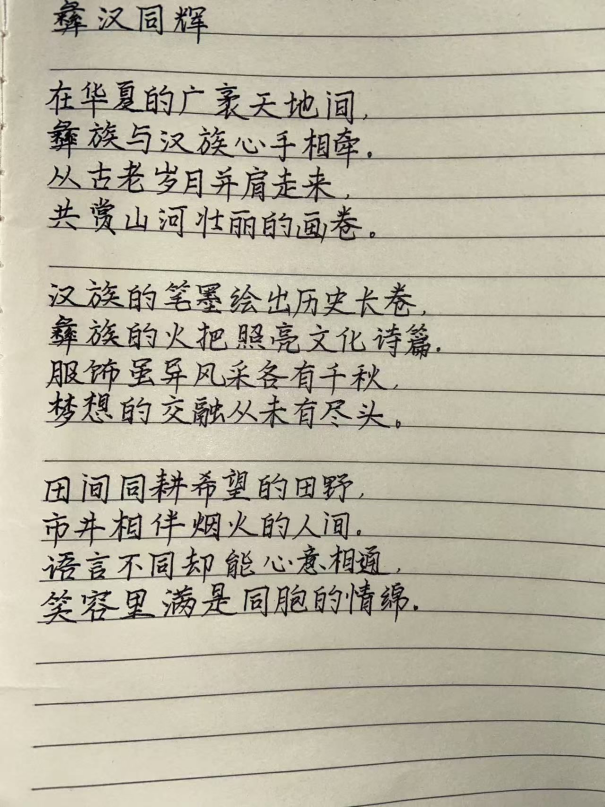 彝汉同辉
在华夏的广袤天地间,
彝族与汉族心手相牵.
从古老岁月并肩走来,
共赏山河壮丽的画卷。
汉族的笔墨绘出历史长卷,
彝族的火把照亮文化诗篇.
服饰虽异风采各有千秋,
梦想的交融从未有尽头。
田间同耕希望的田野,
市井相伴烟火的人间。
语言不同却能心意相通,
笑容里满是同胞的情绵.